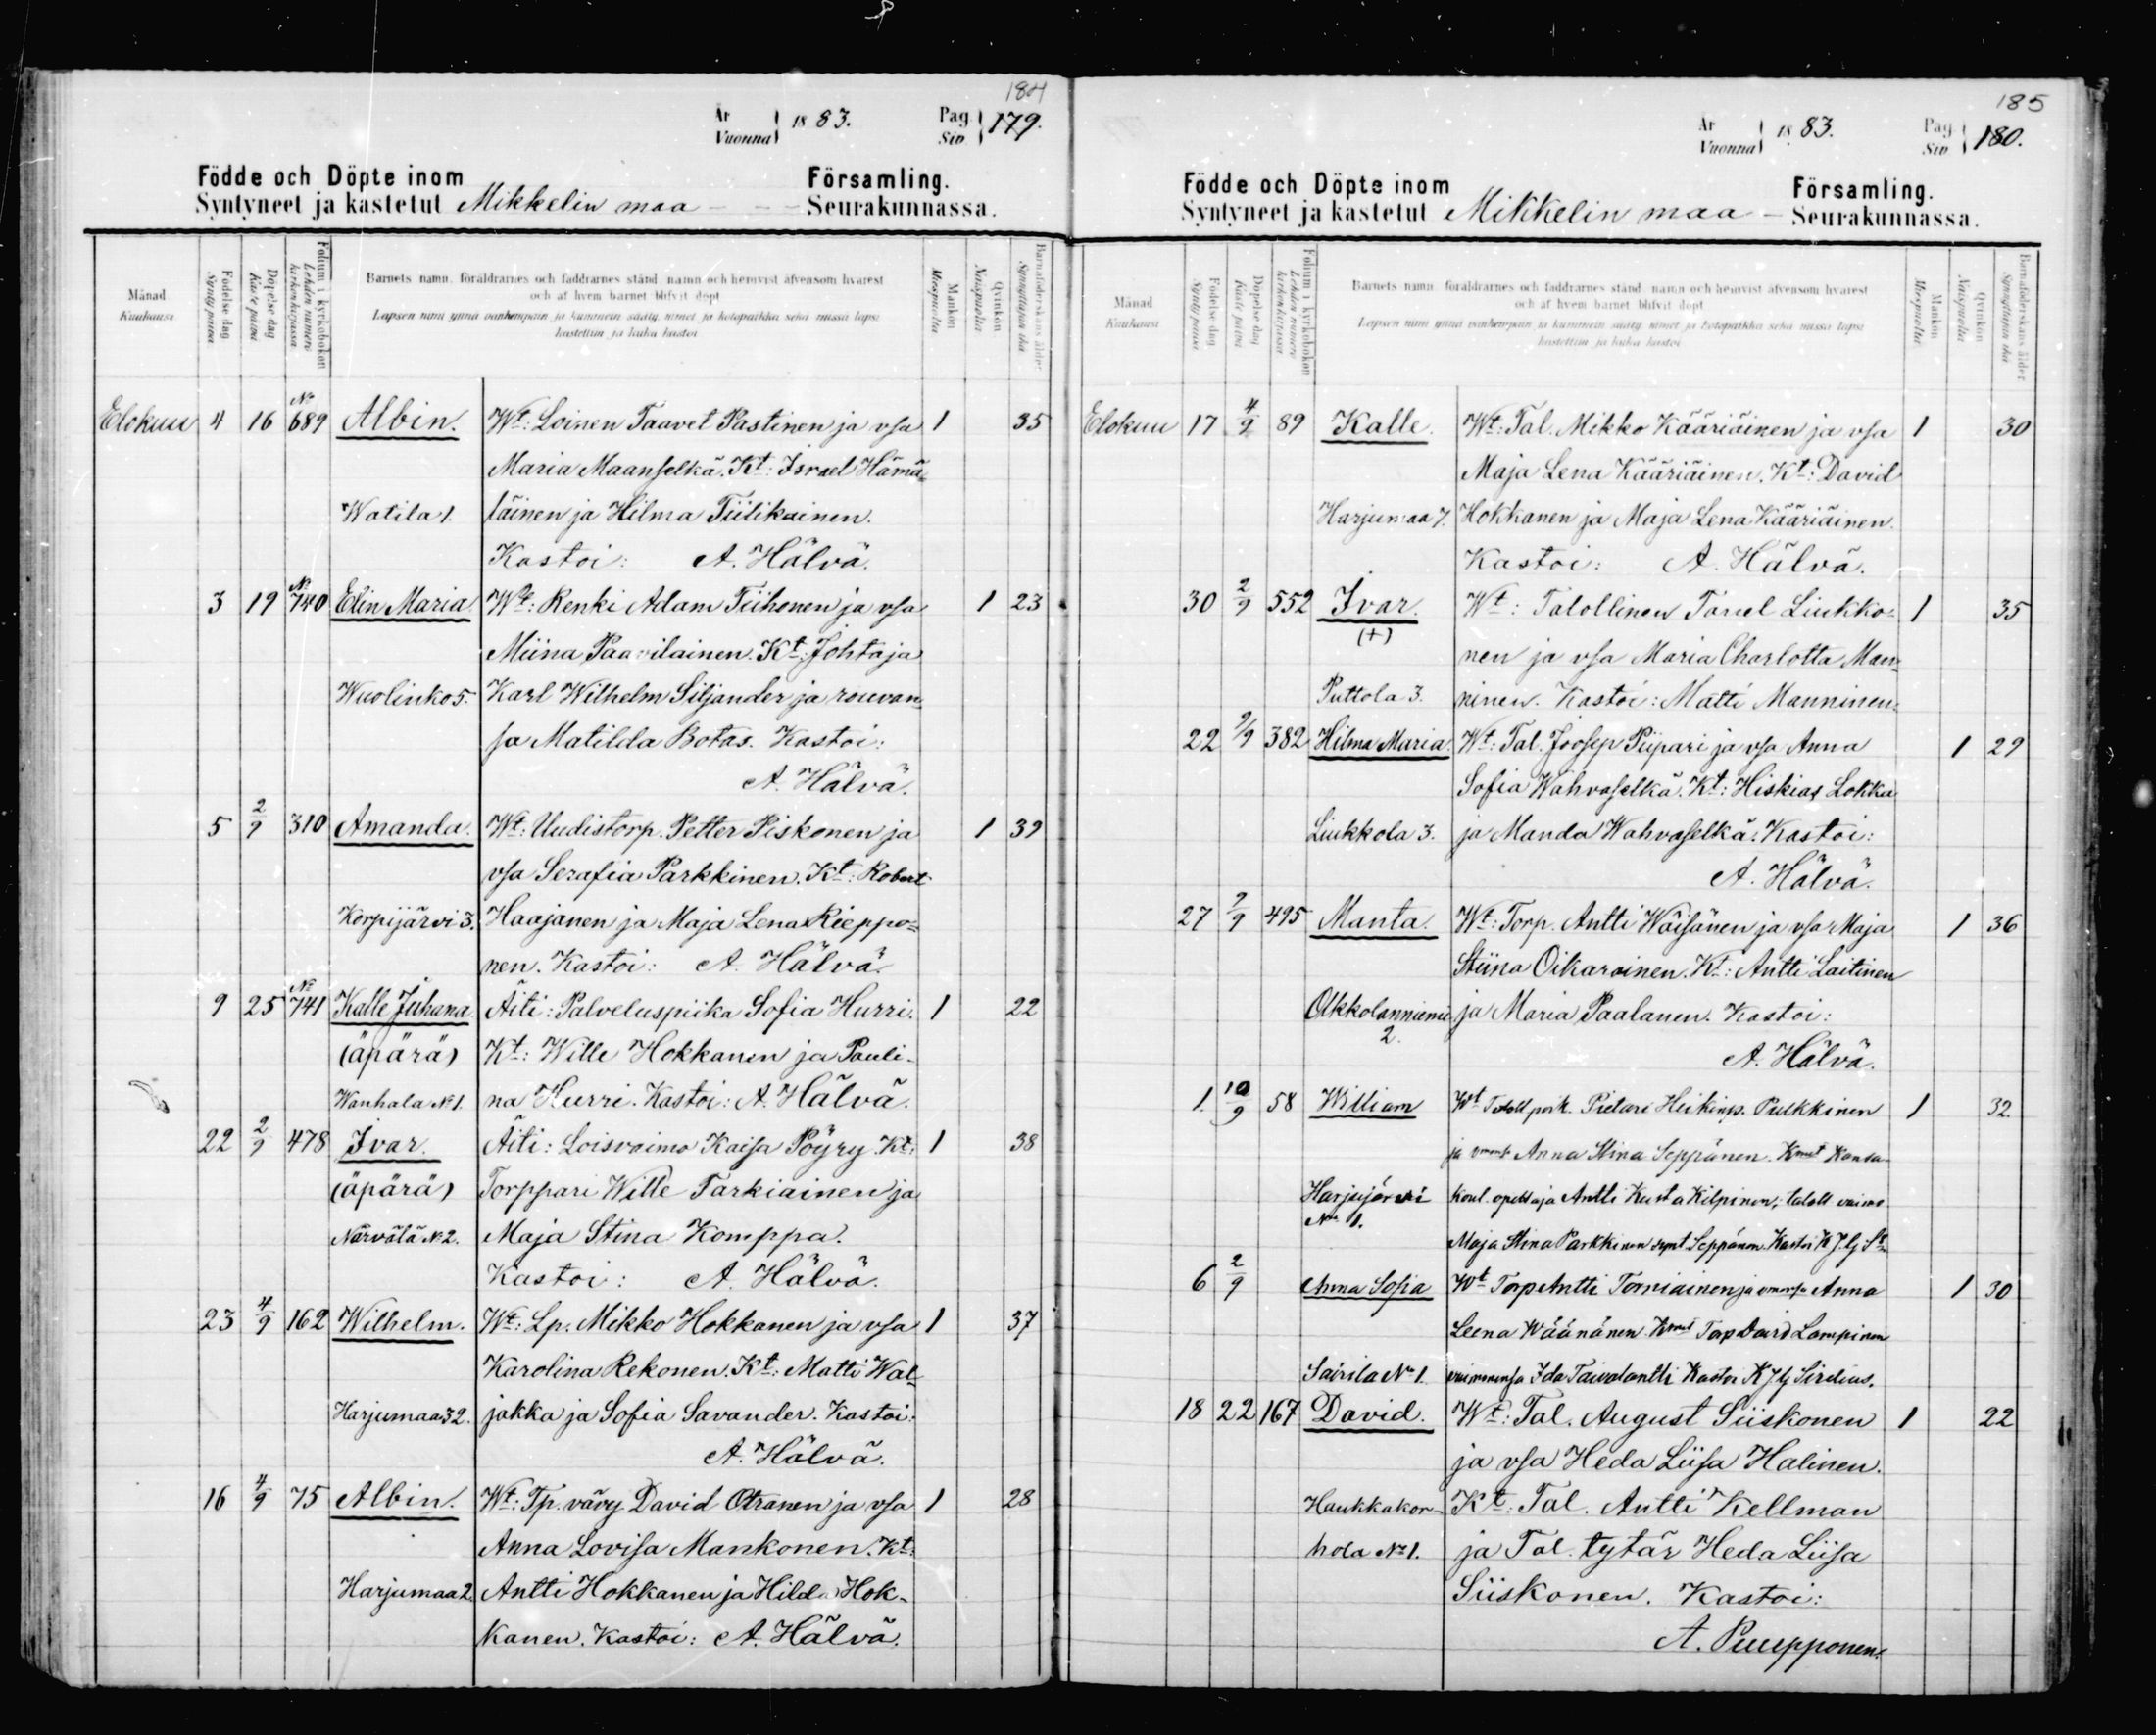 184
År Vuonna 1883. Pag. Siv. 179.
Födde och Döpte inom Församling.
Syntyneet ja kastetut Mikkelin maa - - - Seurakunnassa.
Månad Kuukausi
Födelse dag Syntypäivä
Döpelse dag Kastepäivä
Folium i kyrkoboken Lehden numero kirkonkirjassa
Barnets namn, föräldrarnes och faddrarnes stånd namn och hemvist äfvensom hvarest
och af hvem barnet blifvit döpt
Lapsen nimi ynnä vanhempain ja kummein sääty nimet ja kotopaikka sekä missä lapsi
kastettiin ja kuka kastoi
Mankön Miespuolta
Qvinkön Naispuolta
Barnaföderskans ålder Synnyttäjän ikä
Elokuu 4 16 No 689 Albin. Wt: Loinen Taavet Pastinen ja vsa 1 35
Maria Maanselkä. Kt: Israel Hämä-
Watila 1. läinen ja Hilma Tiilikainen.
Kastoi: A. Hälvä.
3 19 No 740 Elin Maria Wt: Renki Adam Tiihonen ja vsa 1 23
Miina Paavilainen. Kt: Johtaja
Wuolinko 5. Karl Wilhelm Siljander ja rouvan-
sa Matilda Botas. Kastoi:
A. Hälvä.
5 2/9 310 Amanda. Wt: Uudistorp. Petter Piskonen ja 1 39
vsa Serafia Parkkinen. Kt: Robert
Korpijärvi 3. Haajanen ja Maja Lena Rieppo=
nen. Kastoi: A. Hälvä.
9 25 No 741 Kalle Juhana. Äiti: Palveluspiika Sofia Hurri. 1 22
(äpärä) Kt: Wille Hokkanen ja Pauli-
Wanhala No 1. na Hurri. Kastoi: A. Hälvä.
22 2/9 478 Ivar. Äiti: Loisvaimo Kaisa Pöyry. Kt: 1 38
(äpärä) Torppari Wille Tarkiainen ja
Närvälä No 2. Maja Stina Komppa.
Kastoi: A. Hälvä.
23 4/9 162 Wilhelm. Wt: Lp. Mikko Hokkanen ja vsa 1 37
Karolina Rekonen. Kt: Matti Wal-
Harjumaa 32. jakka ja Sofia Savander. Kastoi:
A. Hälvä.
16 4/9 75 Albin. Wt: Tp. vävy David Otranen ja vsa 1 28
Anna Lovisa Mankonen. Kt:
Harjumaa 2. Antti Hokkanen ja Hilda Hok-
kanen. Kastoi: A. Hälvä.
185
År Vuonna 1883. Pag. Siv. 180.
Födde och Döpte inom Församling.
Syntyneet ja kastetut Mikkelin maa - Seurakunnassa.
Månad Kuukausi
Födelse dag Syntypäivä
Döpelse dag Kastepäivä
Folium i kyrkoboken Lehden numero kirkonkirjassa
Barnets namn, föräldrarnes och faddrarnes stånd namn och hemvist äfvensom hvarest
och af hvem barnet blifvit döpt
Lapsen nimi ynnä vanhempain ja kummein sääty nimet ja kotopaikka sekä missä lapsi
kastettiin ja kuka kastoi
Mankön Miespuolta
Qvinkön Naispuolta
Barnaföderskans ålder Synnyttäjän ikä
Elokuu 17 4/9 89 Kalle. Wt: Tal. Mikko Kääriäinen ja vsa 1 30
Maja Lena Kääriäinen. Kt: David
Harjumaa 7. Hokkanen ja Maja Lena Kääriäinen.
Kastoi: A. Hälvä.
30 2/9 552 Ivar. Wt: Talollinen Taneli Liukko- 1 35
(+) nen ja vsa Maria Charlotta Man-
Puttola 3. ninen. Kastoi: Matti Manninen.
22 9/9 382 Hilma Maria. Wt: Tal. Joosep Piipari ja vsa Anna 1 29
Sofia Wahvaselkä. Kt: Hiskias Lokka
Liukkola 3. ja Manda Wahvaselkä. Kastoi:
A. Hälvä.
27 9/9 495 Manta. Wt: Torp. Antti Wäisänen ja vsa Maja 1 36
Stiina Oikarainen. Kt: Antti Laitinen
Olkkolanniemi ja Maria Paalanen. Kastoi:
2. A. Hälvä.
1. 10/9 58 William Wt Pietari Heikinp. Pulkkinen 1 32
ja Anna Stina Seppänen. Kansa-
Harjujärvi koul. opettaja Antti Kusta Kilpinen, taloll vaimo
No 1.
Maja Stina Parkkinen synt Seppänen. Kastoi
6 2/9 Anna Sofia Wt Torp Antti Torniainen ja Anna 1 30
Leena Wäänänen. Torp David Lampinen
Sairila No 1. vaimonsa Ida Taivalantti Kastoi
18 22 167 David. Wt: Tal. August Siiskonen 1 22
ja vsa Heda Liisa Halinen.
Haukkakor- Kt: Tal. Antti Kellman
hola No 1. ja Tal. tytär Heda Liisa
Siiskonen. Kastoi:
A. Puupponen.